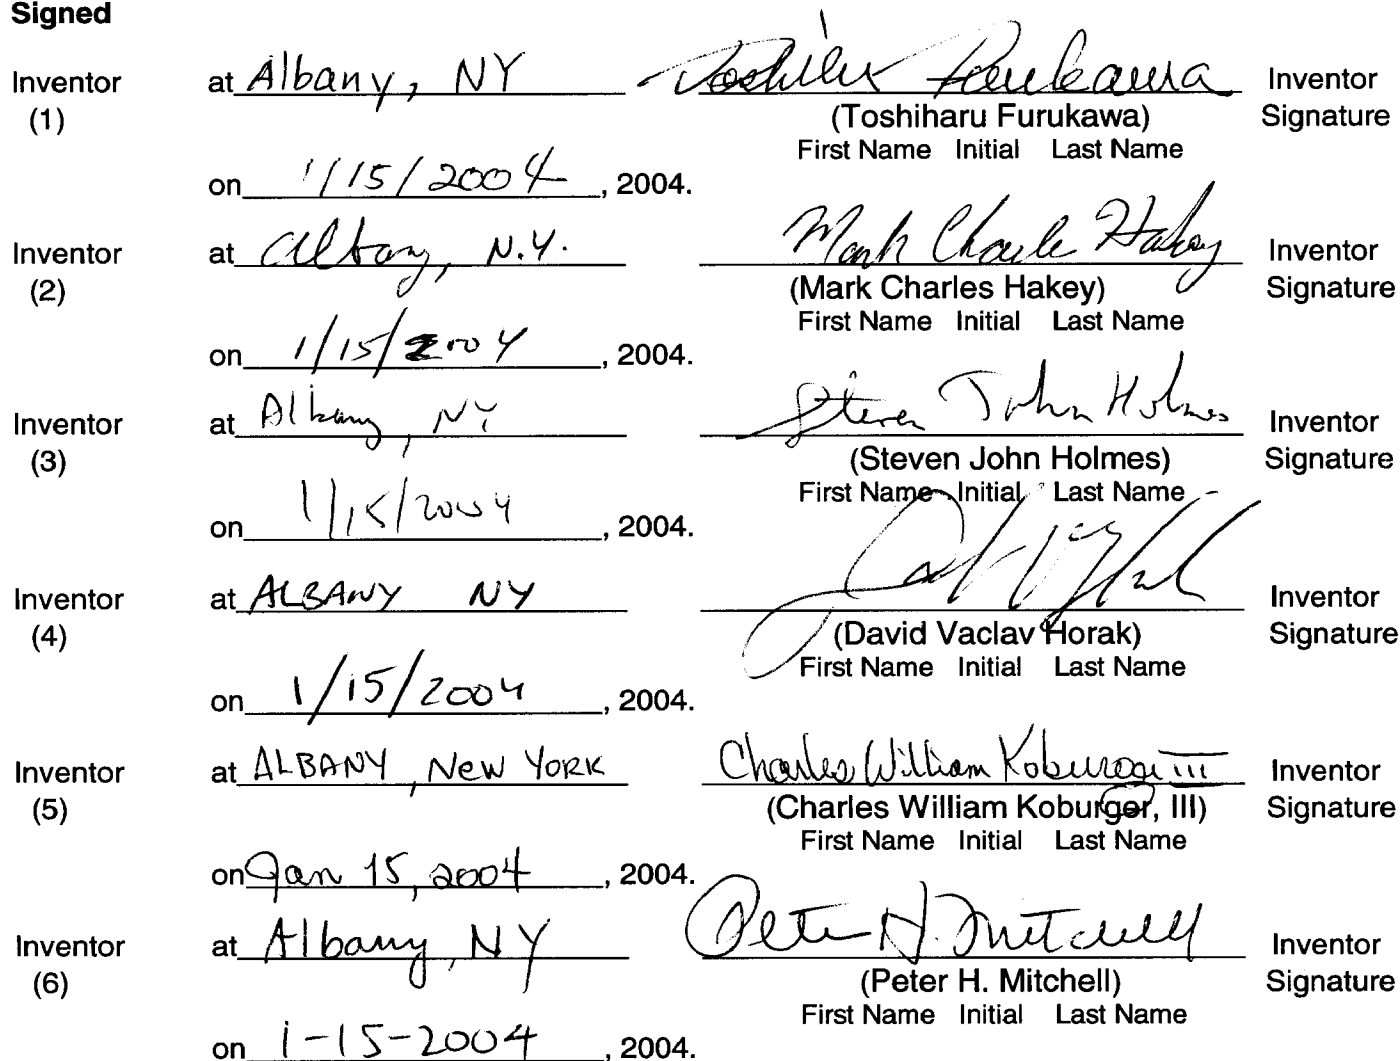 Signed
Inventor at Albany, NY Toshiharu Furukawa Inventor
(1) (Toshiharu Furukawa) Signature
First Name Initial Last Name
on 1/15/2004, 2004.
Inventor at Albany, N.Y. Mark Charles Hakey Inventor
(2) (Mark Charles Hakey) Signature
First Name Initial Last Name
on 1/15/2004, 2004.
Inventor at Albany, NY Steven John Holmes Inventor
(3) (Steven John Holmes) Signature
First Name Initial Last Name
on 1/15/2004, 2004.
Inventor at ALBANY NY Inventor
(4) (David Vaclav Horak) Signature
First Name Initial Last Name
on 1/15/2004, 2004.
Inventor at ALBANY, NEW YORK Charles William Koburger III Inventor
(5) (Charles William Koburger, III) Signature
First Name Initial Last Name
on Jan 15, 2004, 2004.
Inventor at Albany, NY Peter H. Mitchell Inventor
(6) (Peter H. Mitchell) Signature
First Name Initial Last Name
on 1-15-2004, 2004.